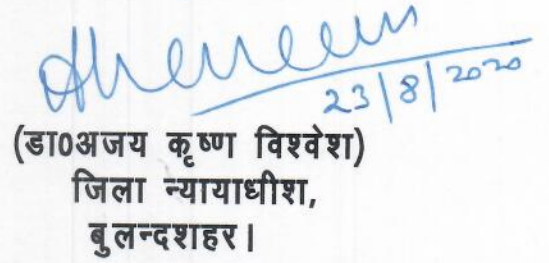 23/8/2020
(डा0अजय कृष्ण विश्वेश)
जिला न्यायाधीश,
बुलन्दशहर।